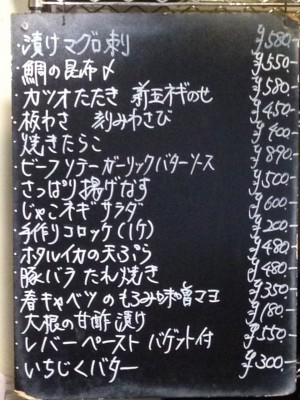 漬けマグロ刺 ¥580-
鯛の昆布〆 ¥550-
カツオたたき 新玉ネギのせ ¥580-
板わさ 刻みわさび ¥450-
焼きたらこ ¥400-
ビーフソテーガーリックバターソース ¥890-
さっぱり揚げなす ¥500-
じゃこネギサラダ ¥600-
手作りコロッケ(1ケ) ¥200-
ホタルイカの天ぷら ¥480-
豚バラ たれ焼き ¥480-
春キャベツのもろみ味噌マヨ ¥350-
大根の甘酢漬け ¥180-
レバーペースト バゲット付 ¥550-
いちじくバター ¥300-